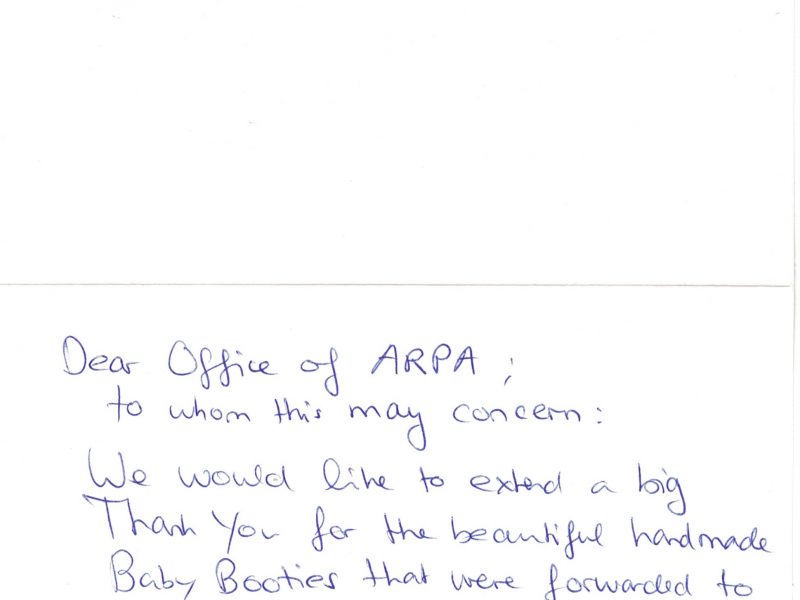 Dear Office of ARPA ;
to whom this may concern :
We would like to extend a big
Thank You for the beautiful handmade
Baby Booties that were forwarded to